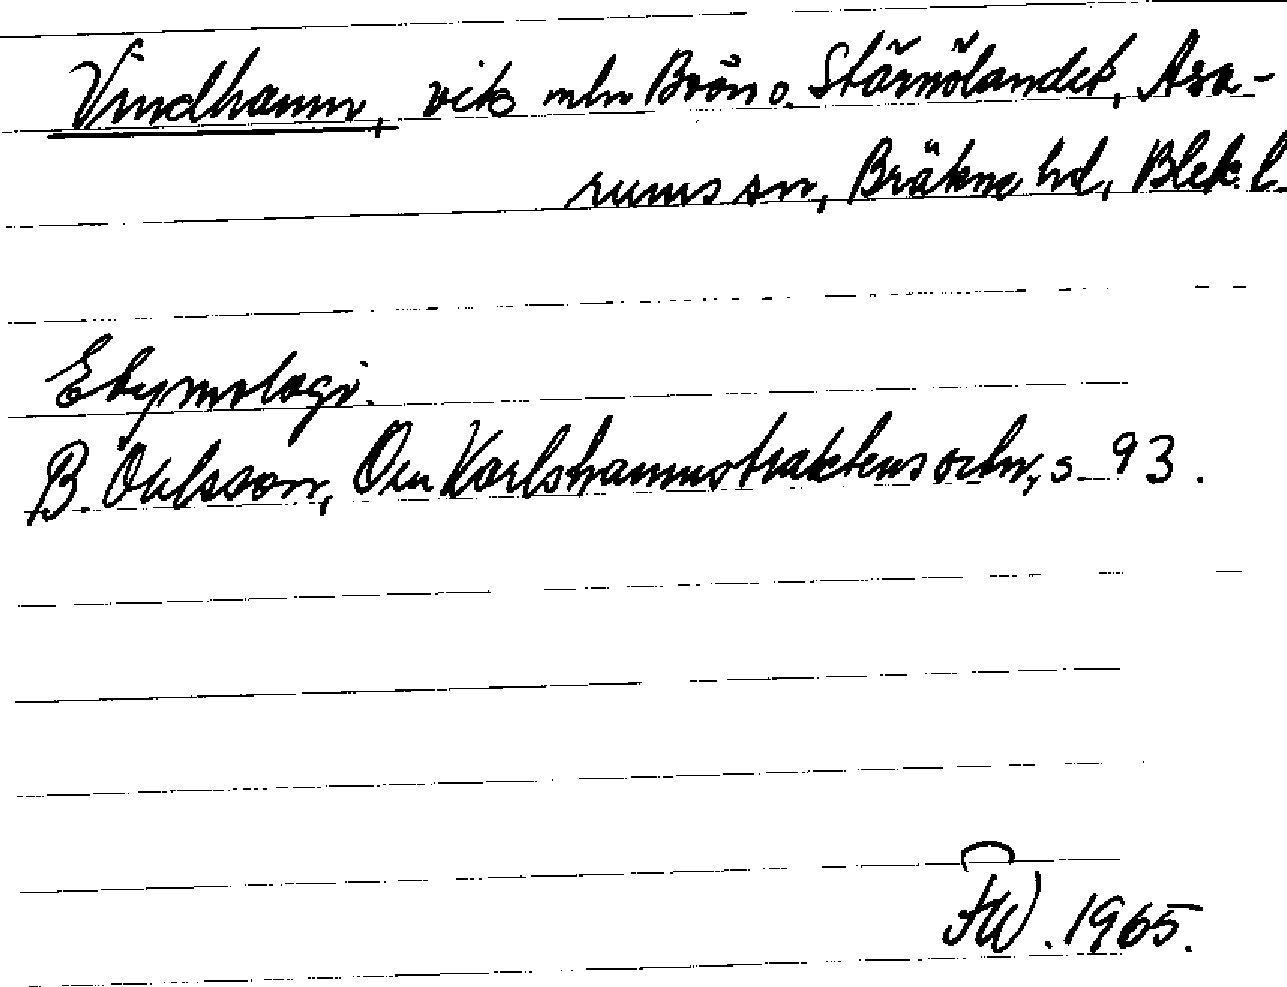 Vindhamn, vik mln Brön o. Stärnölandet, Asa-
rums sn, Bräkne hd, Blek. l.
Etymologi.
B. Ohlsson, Om Karlshamnstraktens ortn, s. 93.
. 1965.